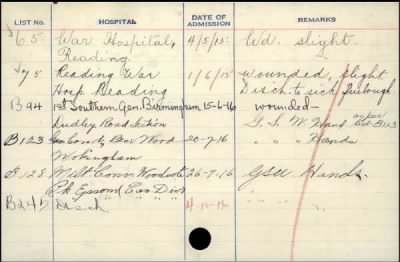 LIST NO. HOSPITAL DATE OF ADMISSION REMARKS
65 War Hospital, 4/5/15. Wd. slight.
Reading.
75 Reading War 1/6/15 wounded, slight
Hosp Reading Disch. to sick furlough.
B94 1st Southern Gen. Birmingham 15-6-16 wounded—
Dudley Road Section G.S.W. Hand
B123 Bear Wood 20-7-16 " " Hands
Wokingham
B 128 Milt. Conv. Woodcote 26-7-16 GSW Hands.
Pk Epsom (Can. Div)
B242 Disch 4-10-16